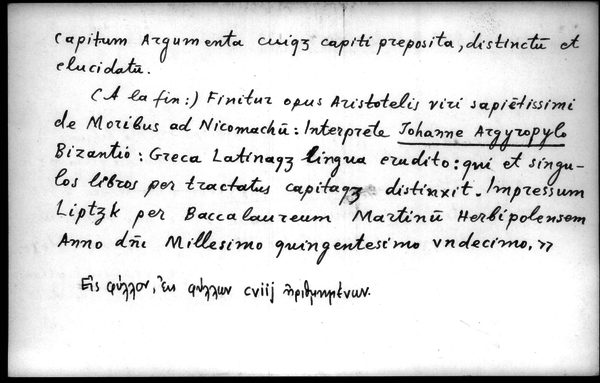 capitum Argumenta cuiqꝫ capiti preposita, distinctū et
elucidatū.
(A la fin:) Finitur opus Aristotelis viri sapiētissimi
de Moribus ad Nicomachū: Interprete Johanne Argyropylo
Bizantio: Greca Latinaqꝫ lingua erudito: qui et singu-
los libros per tractatus capitaqꝫ distinxit. Impressum
Liptzk per Baccalaureum Martinū Herbipolensem
Anno dn̄i Millesimo quingentesimo vndecimo. »
Εἰς φύλλον, ἐκ φύλλων cviij ἠριθμημένων.